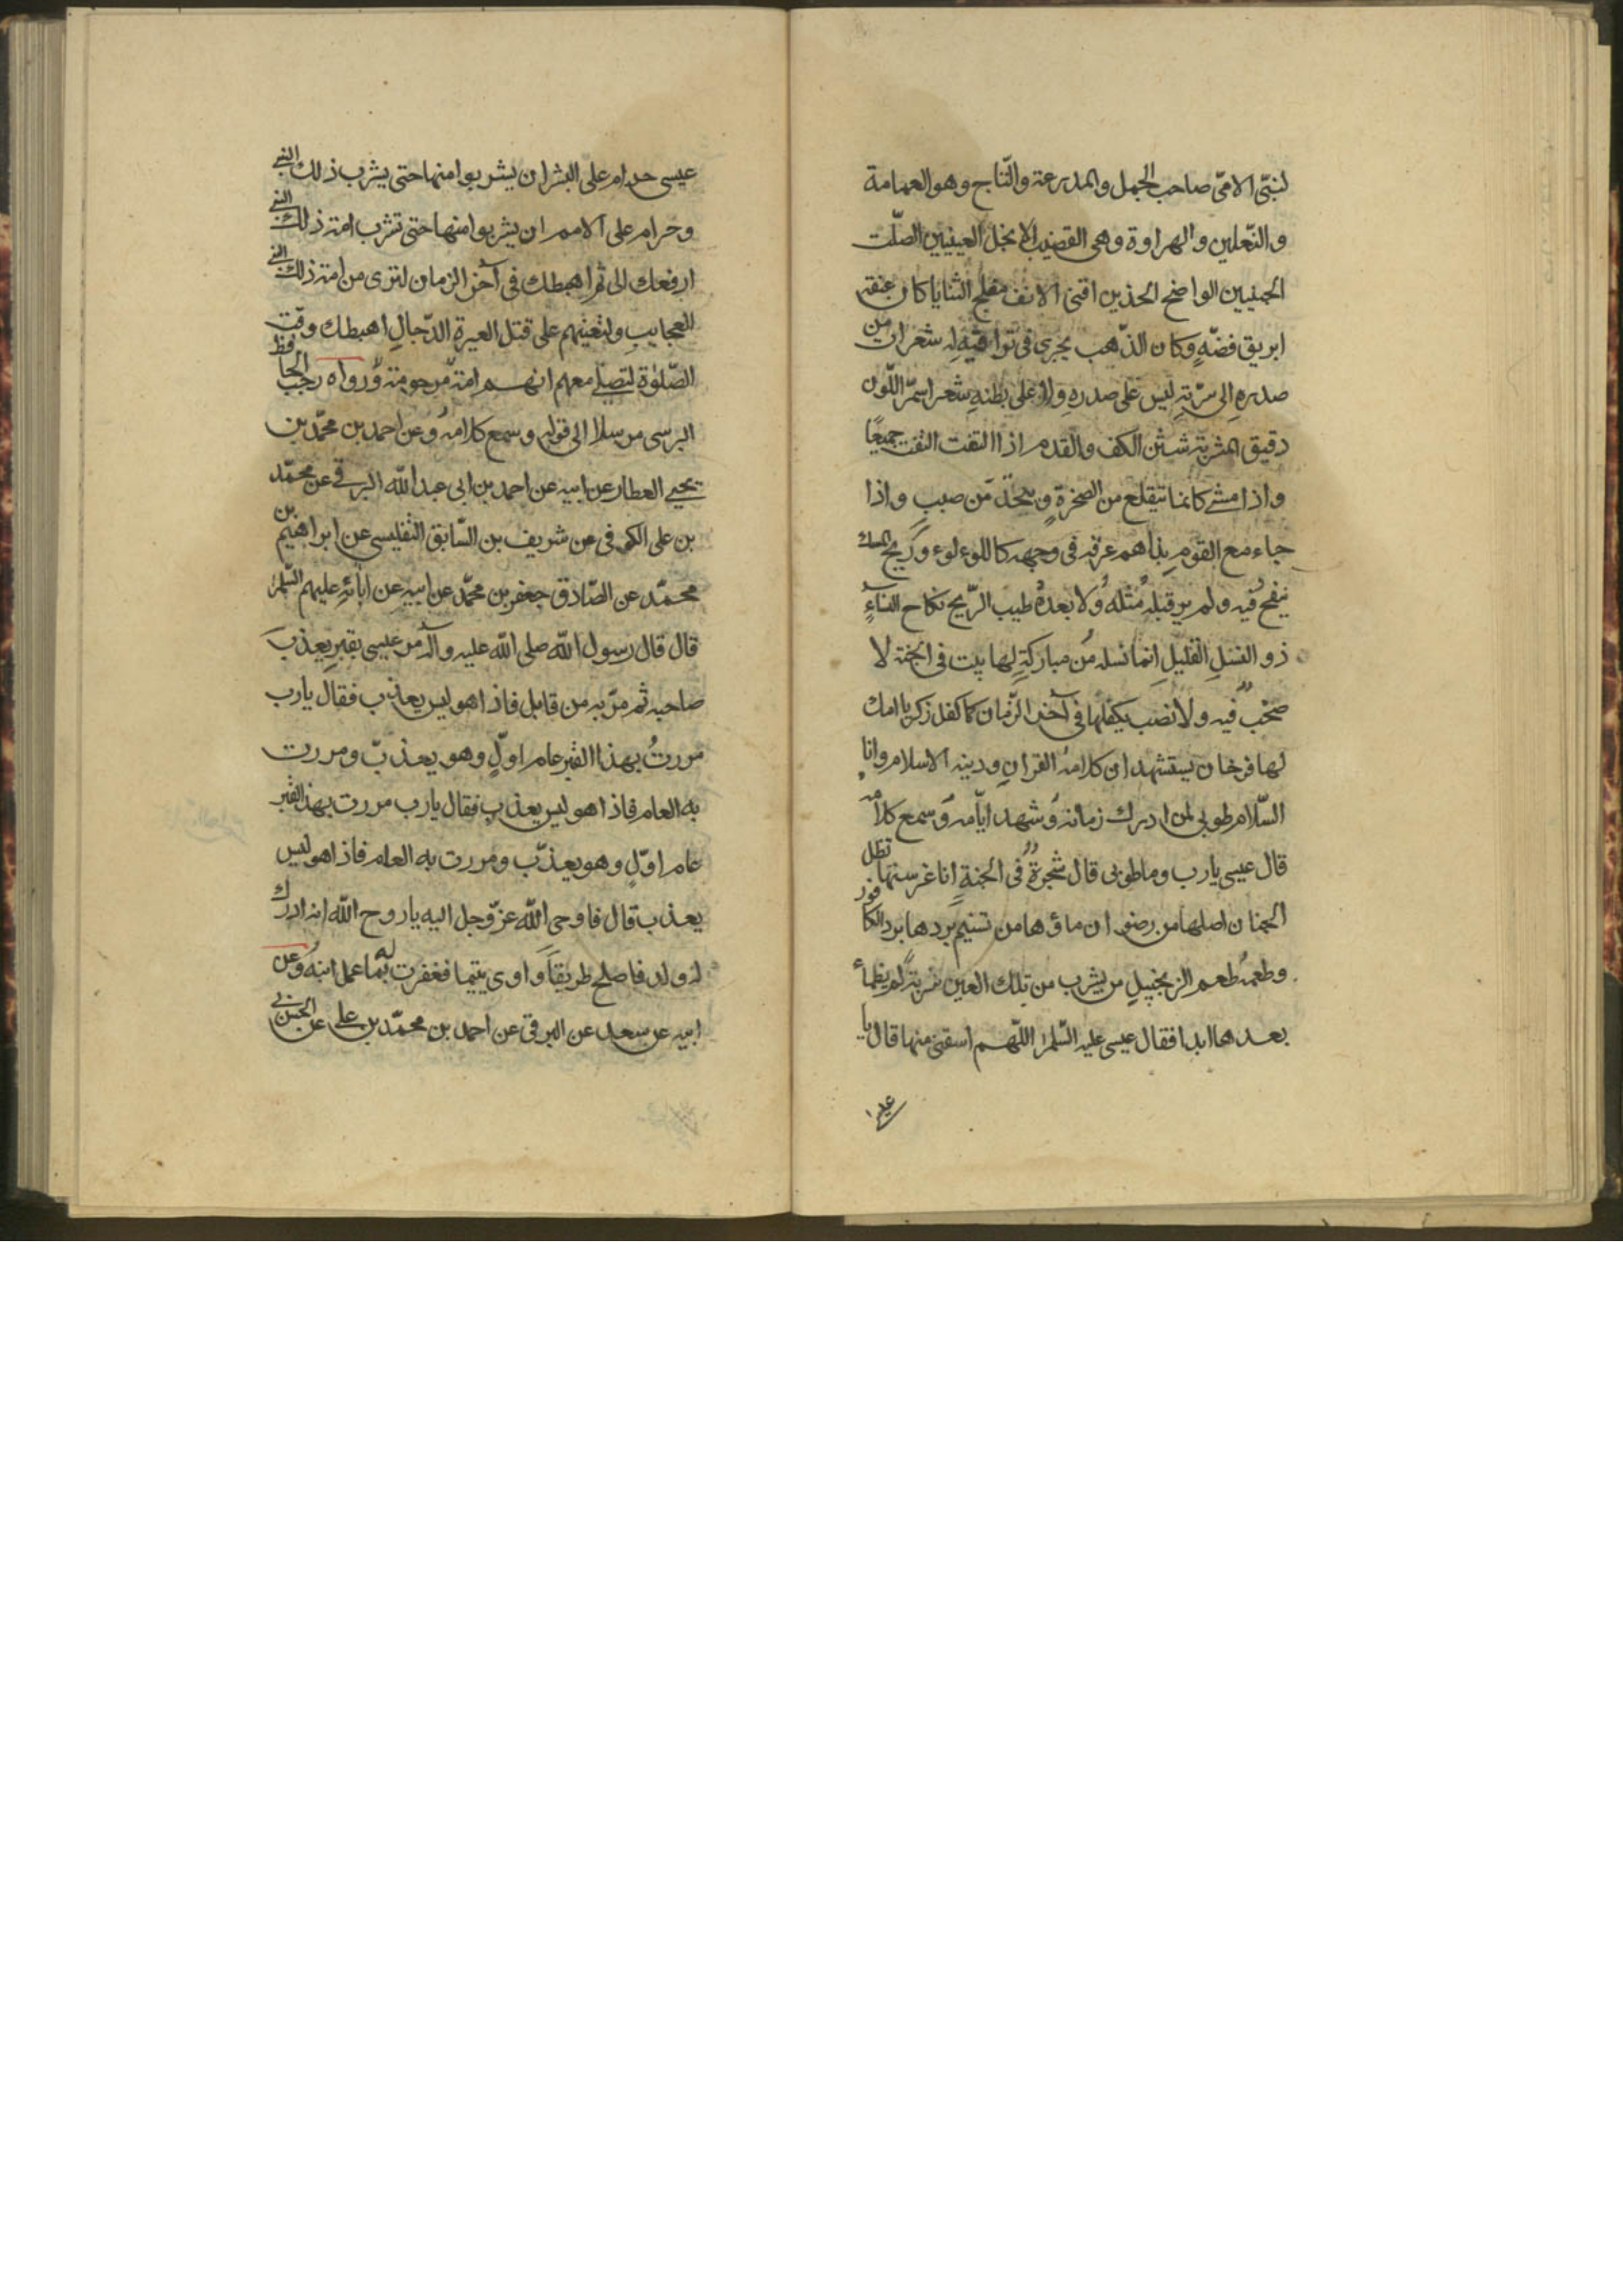 لنبىّ الامىّ صاحب الجمل والمدرعة والتّاج وهو العمامة
والنّعلين والهراوة وهى القضيب الانجل العينين الصّلت
الجبنيين الواضح الخذين اقنى الانف مفلج الثنايا كان عنقه
ابريق فضّةٍ وكان الذّهب يجرى فى تواقيه له شعرات من
صدره الى سرّته ليس على صدره ولا على بطنه شعر اسمر اللّون
دقيق المشربة شثن الكف والقدم اذا التفت التفت جميعًا
واذا مشے كانما يتقلع من الصخرة وينحدّ من صببٍ واذا
جاء مع القوم بذاهم عرقه فى وجهه كاللوءلوء وريح المسك
ينفح فيه ولم ير قبله مثله ولا بعده طيب الرّيح نكاح النساءِ
ذو النسل القليل انما نسله من مباركةٍ لها بيت فى الجنة لا
صخب فيه ولا نصب يكفلها فى آخر الزّمان كما كفل زكريا امك
لها فرخان يستشهدان كلامه القران ودينه الاسلام وانا
السّلام طوبى لمن ادرك زمانه وشهد ايّامه وسمع كلامه
قال عيسى يارب وما طوبى قال شجرة فى الجنة انا غرستها تظل
الجنان اصلها من رضوان ماؤها من تسنيم بردها برد الكافور
وطعمه طعم الزنجبيل من يشرب من تلك العين شربة لم يظمأ
بعدها ابدا فقال عيسى عليه السّلم اللّهم اسقنى منها قال يا
عيسى
عيسى حرام على البشر ان يشربوا منها حتى يشرب ذلك النبى
وحرام على الامم ان يشربوا منها حتى تشرب امة ذلك النبى
ارفعك الى ثم اهبطك فى آخر الزمان لترى من امة ذلك النبى
العجايب ولتعينهم على قتل العيرة الدّجال اهبطك وقت
الصّلوة لتصلے معهم انهم امة مرحومة ورواه رجب الحافظ
البرسى مرسلا الى قوله وسمع كلامه وعن احمد بن محمّد بن
يحيى العطار عن ابيه عن احمد بن ابى عبد اللّه البرقى عن محمّد
بن على الكوفى عن شريف بن السّابق التفليسى عن ابراهيم بن
محمّد عن الصّادق جعفر بن محمّد عن ابيه عن ابائه عليهم السّلم
قال قال رسول اللّه صلى اللّه عليه وآله مر عيسى بقبر يعذب
صاحبه ثم مرّ به من قابل فاذا هو ليس يعذب فقال يارب
مررتُ بهذا القبر عام اولٍ وهو يعذبّ ومررت
به العام فاذا هو ليس يعذب فقال يارب مررت بهذ القبر
عام اوّلٍ وهو يعذّب ومررت به العام فاذا هو ليس
يعذب قال فاوحى اللّه عزّ وجل اليه ياروح اللّه انه ادرك
له ولد فاصلح طريقاً واوى يتيما فغفرت له بما عمل ابنه وعن
ابيه عن سعد عن البرقى عن احمد بن محمّد بن على عن الحسن بن